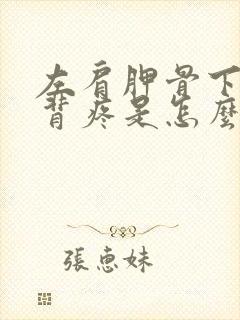 左肩胛骨下
背疼是怎麼
張惠妹